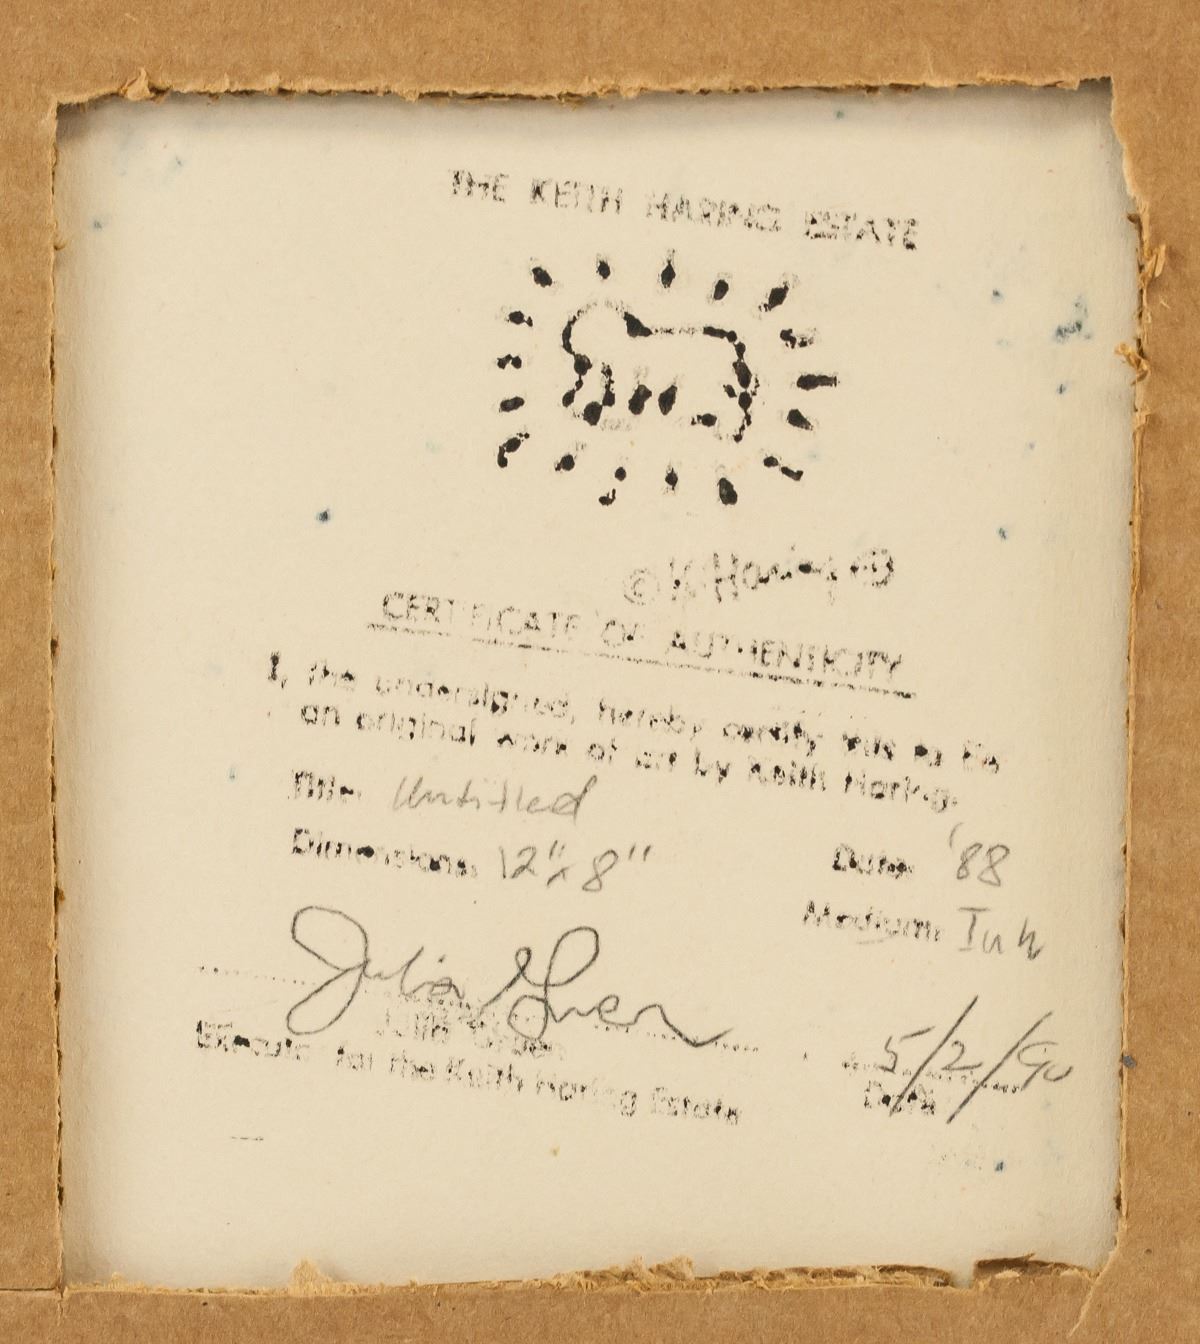 THE KEITH HARING ESTATE
© K. Haring
CERTIFICATE OF AUTHENTICITY
I, the undersigned, hereby certify this to be
an original work of art by Keith Haring.
Title: Untitled
Dimensions: 12" x 8"
Date: '88
Medium: Ink
Julia Gruen
Julia Gruen
Executor for the Keith Haring Estate
5/2/90
Date